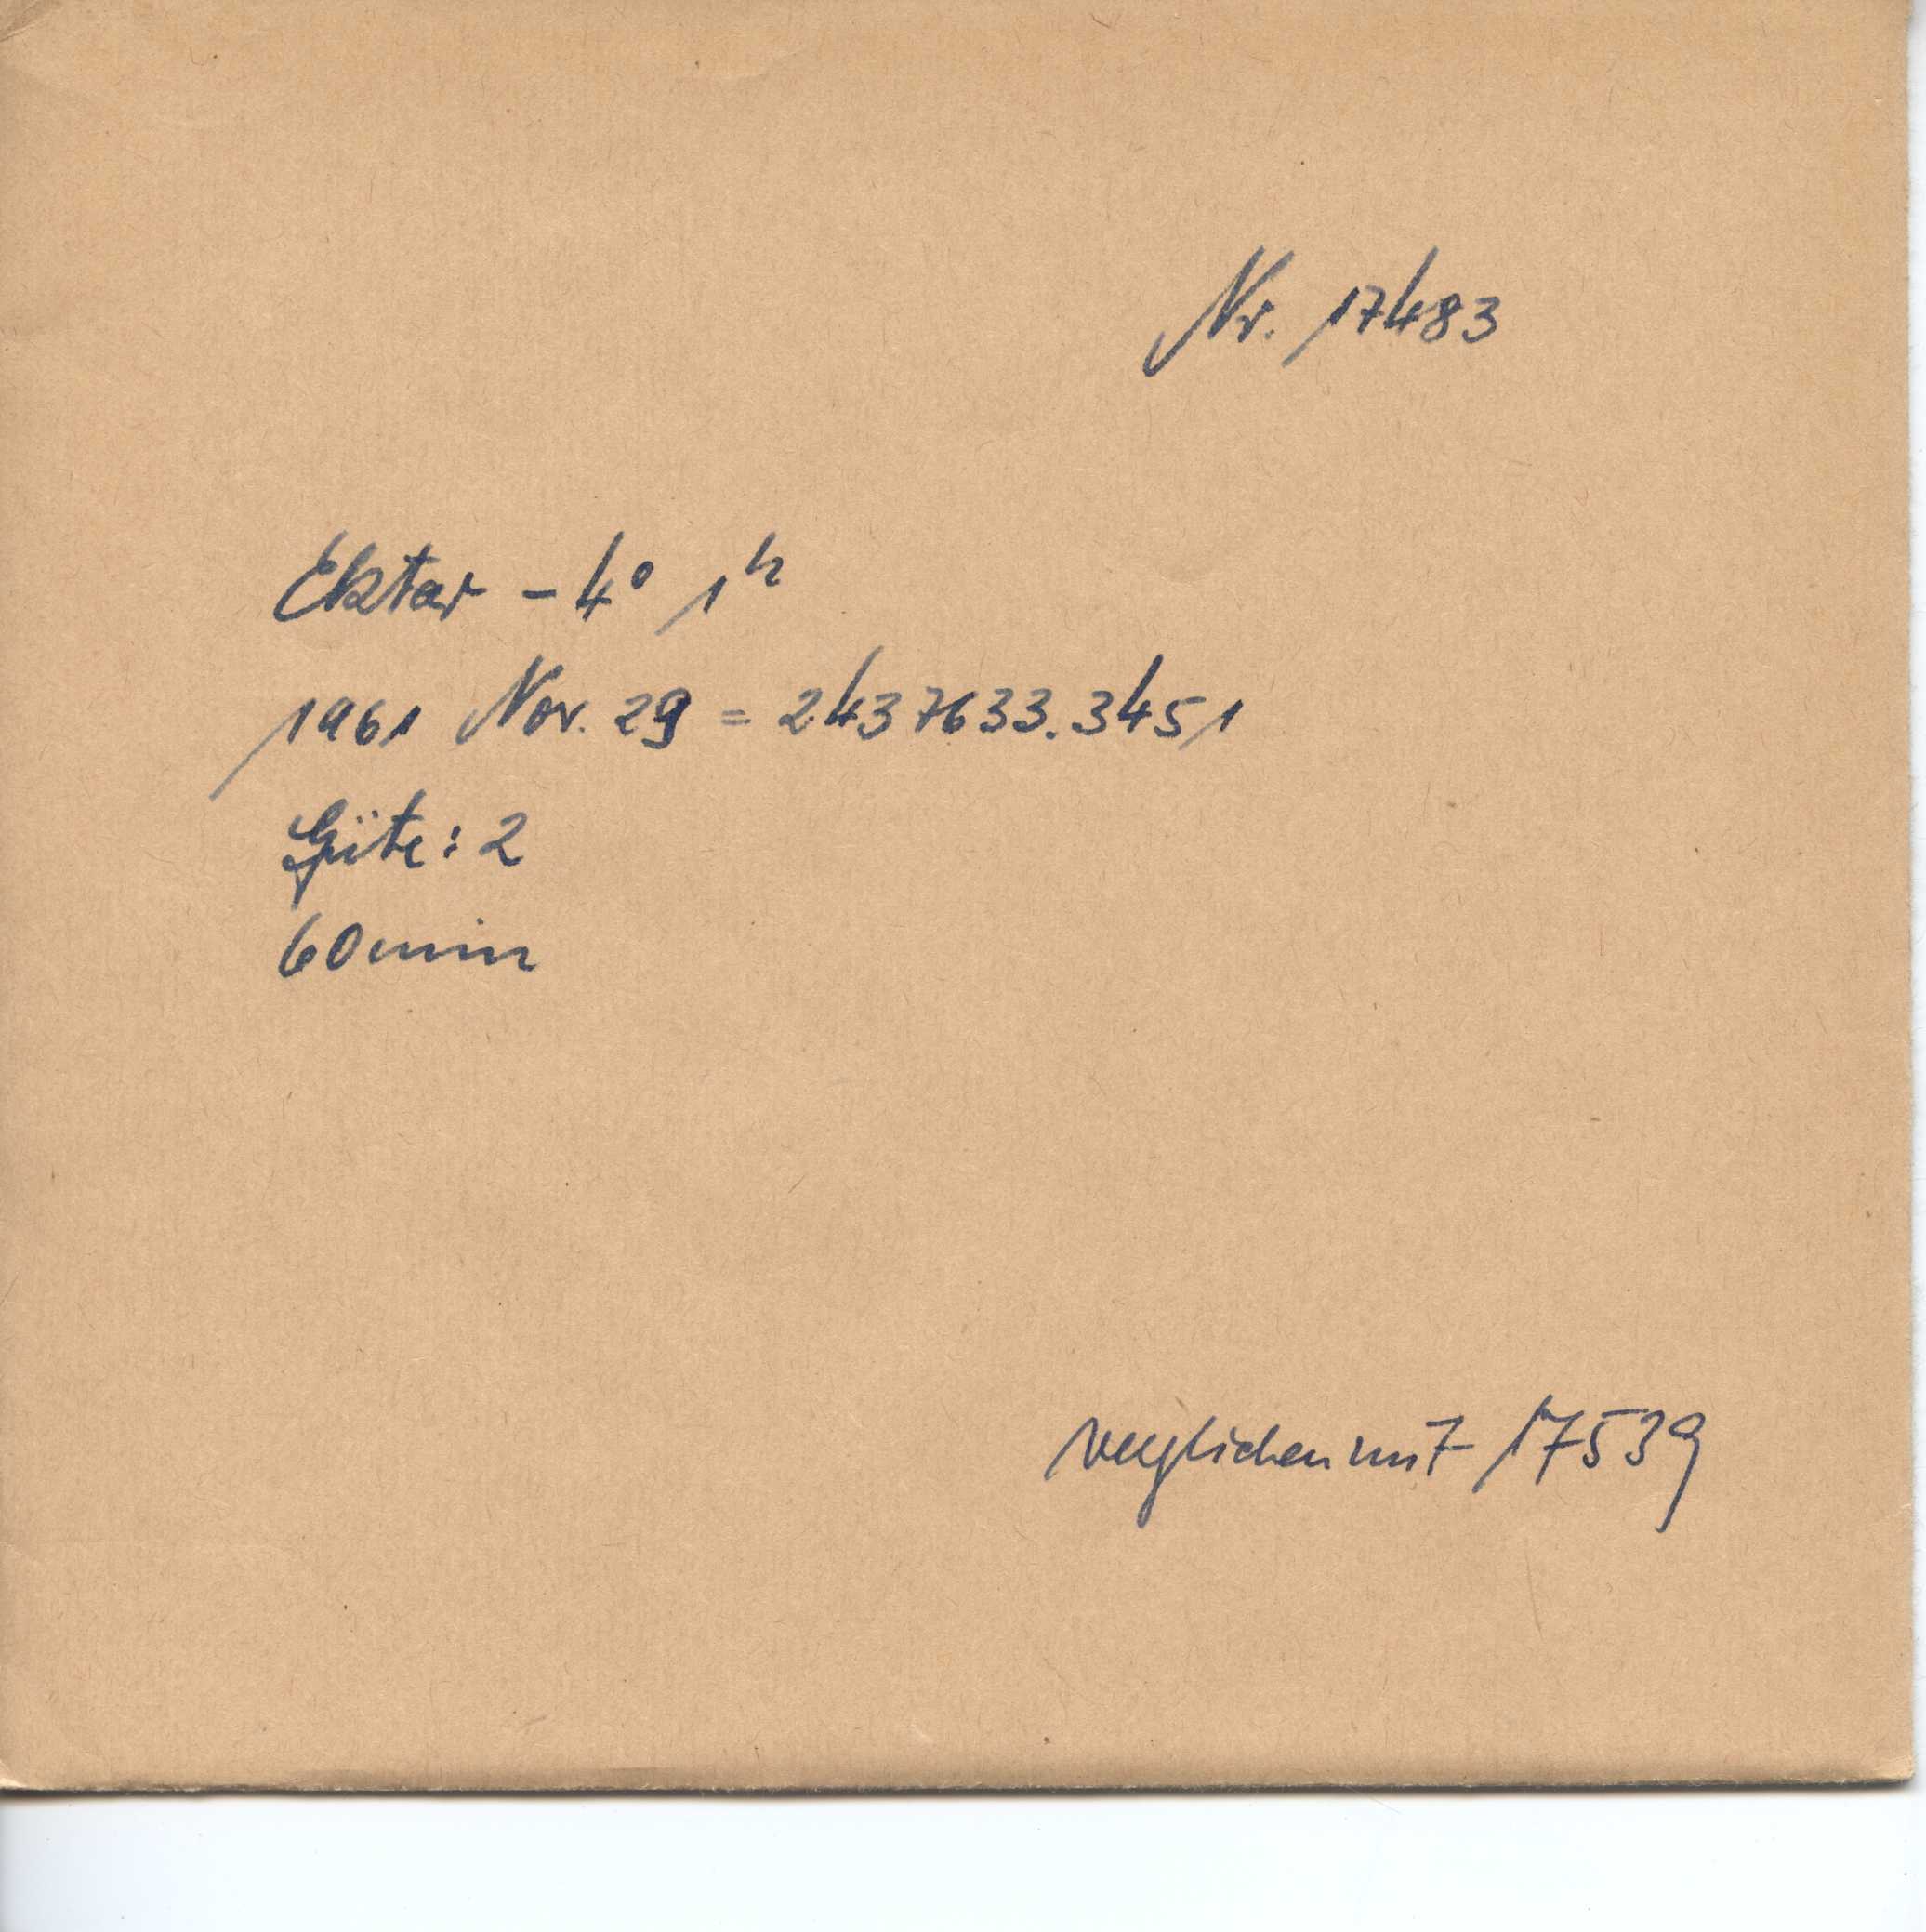 Nr. 17483
Ektar - 4° 1ʰ
1961 Nov. 29 = 2437633.3451
Güte: 2
60min
verglichen mit 17539